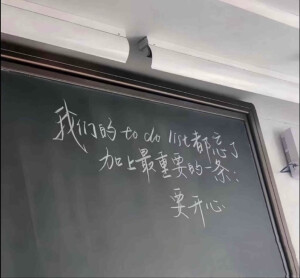 我们的to do list都忘了
加上最重要的一条：
要开心